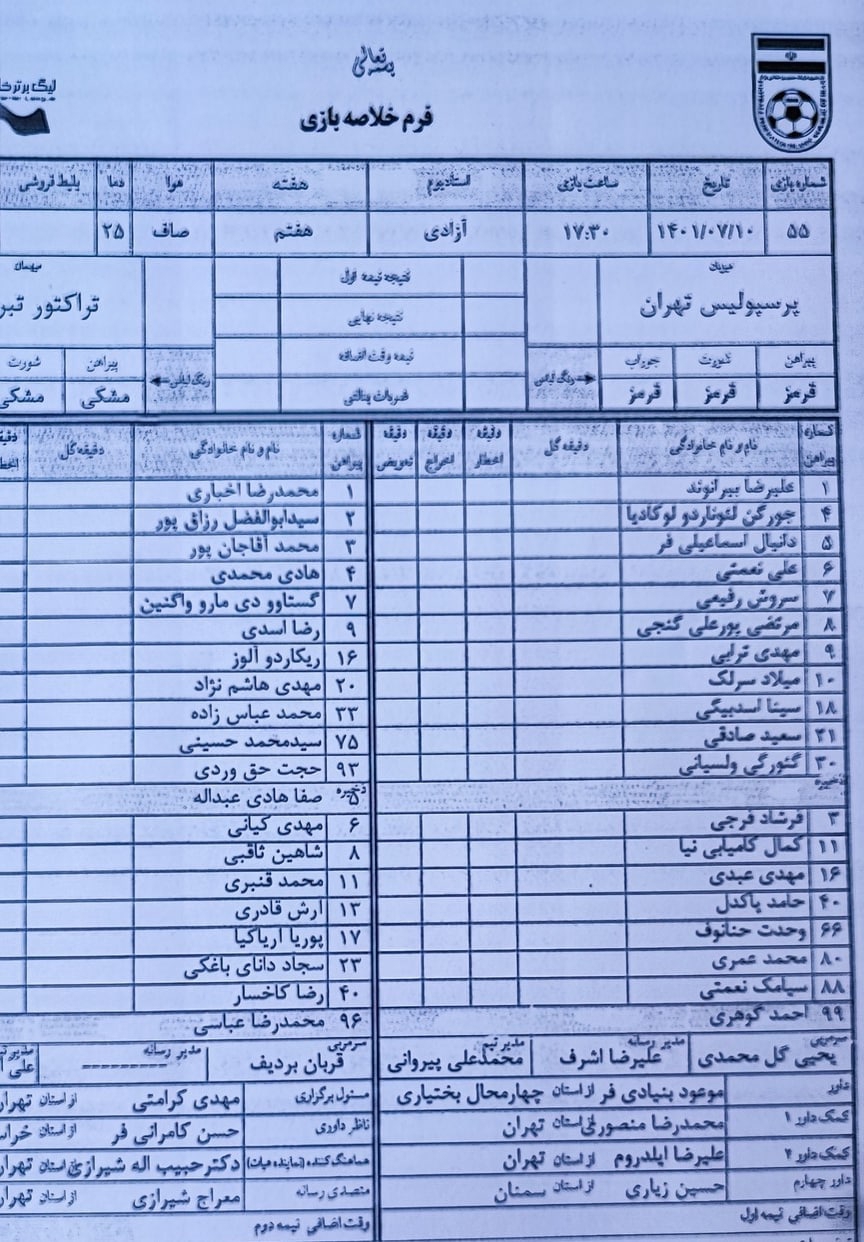 بسمه تعالی
لیگ برتر
فرم خلاصه بازی
شماره بازی تاریخ ساعت بازی استادیوم هفته هوا دما بلیط فروشی
۵۵ ۱۴۰۱/۰۷/۱۰ ۱۷:۳۰ آزادی هفتم صاف ۲۵
میزبان نتیجه نیمه اول میهمان
پرسپولیس تهران نتیجه نهایی تراکتور
پیراهن شورت جوراب نیمه وقت اضافه پیراهن شورت
قرمز قرمز قرمز رنگ لباس ضربات پنالتی رنگ لباس مشکی مشکی
شماره پیراهن نام و نام خانوادگی دقیقه گل دقیقه اخطار دقیقه اخراج دقیقه تعویض شماره پیراهن نام و نام خانوادگی دقیقه گل
۱ علیرضا بیرانوند ۱ محمدرضا اخباری
۴ جورگن لئوناردو لوکادیا ۲ سیدابوالفضل رزاق پور
۵ دانیال اسماعیلی فر ۳ محمد آقاجان پور
۶ علی نعمتی ۴ هادی محمدی
۷ سروش رفیعی ۷ گستاوو دی مارو واگنین
۸ مرتضی پورعلی گنجی ۹ رضا اسدی
۹ مهدی ترابی ۱۶ ریکاردو آلوز
۱۰ میلاد سرلک ۲۰ مهدی هاشم نژاد
۱۸ سینا اسدبیگی ۳۳ محمد عباس زاده
۲۱ سعید صادقی ۷۵ سیدمحمد حسینی
۳۰ گئورگی ولسیانی ۹۳ حجت حق وردی
ذخیره ذخیره ۵ صفا هادی عبداله
۳ فرشاد فرجی ۶ مهدی کیانی
۱۱ کمال کامیابی نیا ۸ شاهین ثاقبی
۱۶ مهدی عبدی ۱۱ محمد قنبری
۴۰ حامد پاکدل ۱۳ آرش قادری
۶۶ وحدت حنانوف ۱۷ پوریا آریاکیا
۸۰ محمد عمری ۲۳ سجاد دانای باغکی
۸۸ سیامک نعمتی ۴۰ رضا کاخسار
۹۹ احمد گوهری ۹۶ محمدرضا عباسی
سرمربی یحیی گل محمدی مدیر رسانه علیرضا اشرف مدیر تیم محمدعلی پیروانی سرمربی قربان بردیف مدیر رسانه ---------- علی
داور موعود بنیادی فر از استان چهارمحال بختیاری مسئول برگزاری مهدی کرامتی از استان
کمک داور ۱ محمدرضا منصوری از استان تهران ناظر داوری حسن کامرانی فر از استان
کمک داور ۲ علیرضا ایلدروم از استان تهران هماهنگ کننده (نماینده هیات) دکتر حبیب اله شیرازی از استان
داور چهارم حسین زیاری از استان سمنان متصدی رسانه معراج شیرازی از استان
وقت اضافی نیمه اول وقت اضافی نیمه دوم